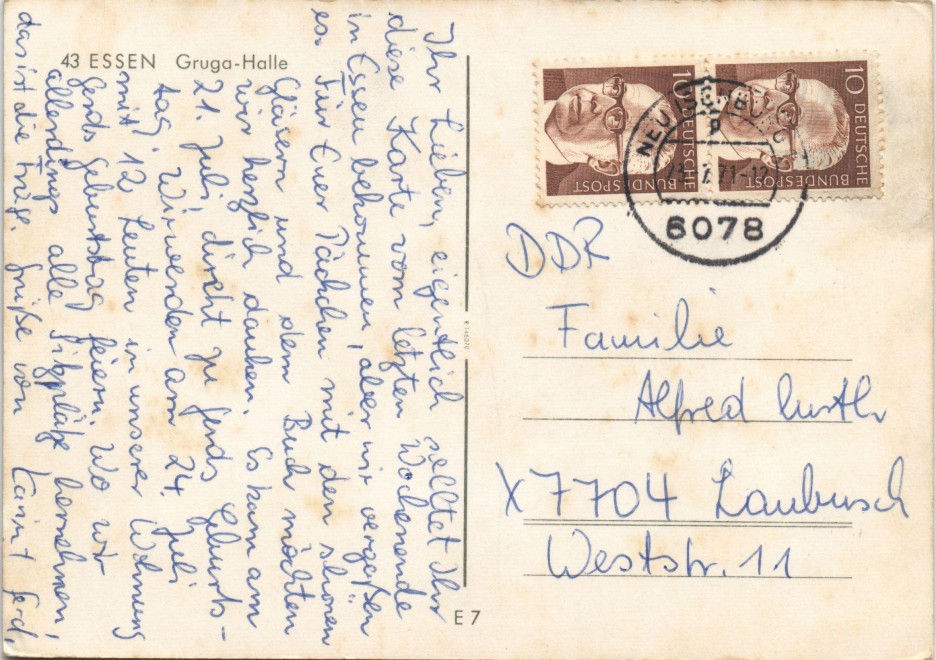 43 ESSEN Gruga-Halle
Ihr Lieben, eigentlich solltet Ihr
diese Karte vom letzten Wochenende
in Essen bekommen, aber wir vergaßen
es. Für Euer Päckchen mit den schönen
Gläsern und dem Buch möchten
wir herzlich danken. Es kam am
21. Juli, direkt zu Gerds Geburts-
tag. Wir werden am 24. Juli
mit 12 Leuten in unserer Wohnung
Gerds Geburtstag feiern. Wo wir
allerdings alle Sitzplätze hernehmen,
das ist die Frage. Grüße von Gerd,
10 DEUTSCHE BUNDESPOST
10 DEUTSCHE BUNDESPOST
71-12
6078
DDR
Familie
Alfred
X 7704 Laubusch
Weststr. 11
E 7